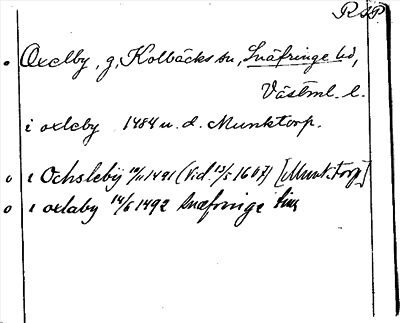 RSP.
Oxelby, g, Kolbäcks sn, Snäfringe hd,
Västml. l.
i oxleby 1484 u. d. Munktorp.
i Ochsleby 10/11 1491 (Vid. 13/5 1607) [Munktorp]
i oxlaby 14/6 1492 Snæfringe